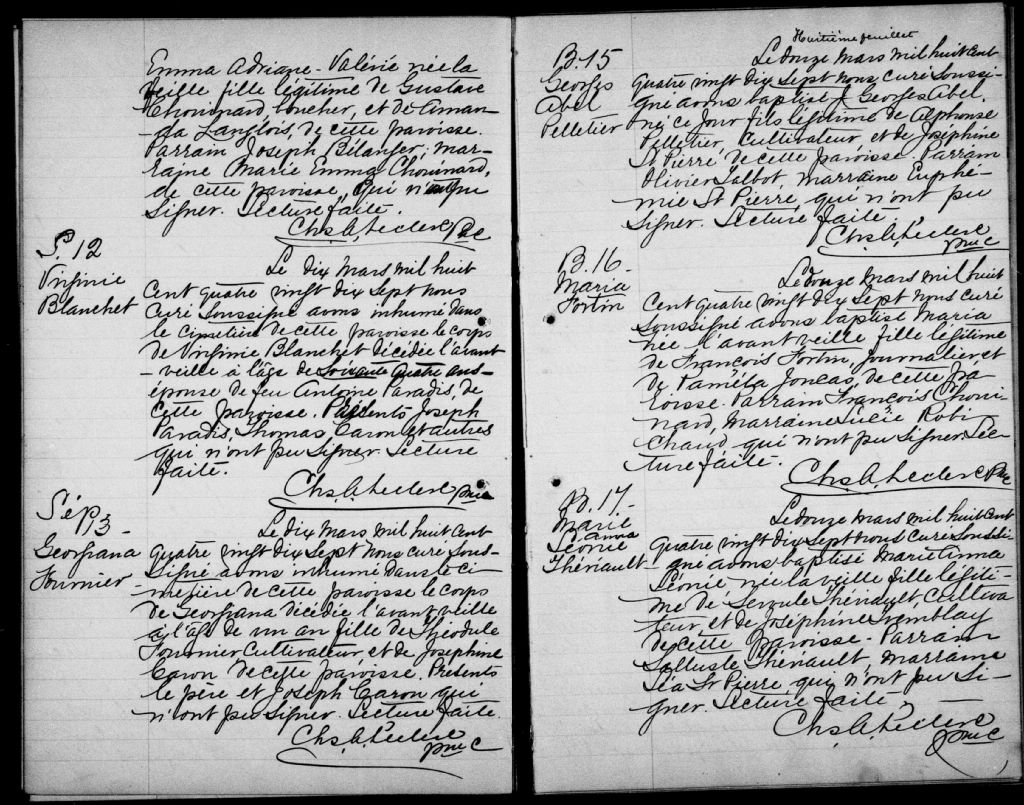 Emma Adriane - Valérie née la
veille fille légitime de Gustave
Chouinard, boucher, et de Aman-
da Langlois, de cette paroisse.
Parrain Joseph Bélanger; mar-
raine Marie Emma Chouinard,
de cette paroisse, qui n'ont pu
signer. Lecture faite.
Chs. A. Leclerc Ptre
S. 12
Virginie
Blanchet
Le dix mars mil huit
cent quatre vingt dix sept nous
curé soussigné avons inhumé dans
le cimetière de cette paroisse le corps
de Virginie Blanchet décédée l'avant
-veille à l'âge de soixante quatre ans
épouse de feu Antoine Paradis, de
cette paroisse. Présents Joseph
Paradis, Thomas Caron et autres
qui n'ont pu signer. Lecture
faite.
Chs. A. Leclerc
Sép. 13 -
Georgiana
Fournier -
Le dix mars mil huit cent
quatre vingt dix sept nous curé sous-
signé avons inhumé dans le ci-
metière de cette paroisse le corps
de Georgiana décédée l'avant veille
à l'âge de un an fille de Théodule
Fournier cultivateur et de Joséphine
Caron de cette paroisse. Présents
le père et Joseph Caron qui
n'ont pu signer. Lecture faite.
Chs. A. Leclerc
Huitième feuillet
B. 15
Georges
Abel
Pelletier
Le douze mars mil huit cent
quatre vingt dix sept nous, curé soussi-
gné avons baptisé Georges Abel,
né ce jour fils légitime de Alphonse
Pelletier, cultivateur, et de Joséphine
St Pierre de cette paroisse. Parrain
Olivier Talbot, marraine Euphé-
mie St Pierre, qui n'ont pu
signer. Lecture faite.
Chs. A. Leclerc
B. 16 -
Maria
Fortin
Le douze mars mil huit
cent quatre vingt dix sept nous curé
soussigné avons baptisé Maria
née l'avant veille fille légitime
de François Fortin, journalier, et
de Paméla Joncas, de cette pa
roisse. Parrain François Choui
nard, marraine Lucie Robi
chaud qui n'ont pu signer. Lec-
ture faite.
Chs. A. Leclerc Ptre
B. 17. -
Marie
Anna
Léonie
Thériault -
Le douze mars mil huit cent
quatre vingt dix sept nous curé soussi-
gné avons baptisé Marie Anna
Léonie née la veille fille légiti-
me de Thériault, cultiva
teur, et de Joséphine Tremblay
de cette paroisse. Parrain
Salluste Thériault, marraine
Léa St Pierre, qui n'ont pu si-
gner. Lecture faite.
Chs. A. Leclerc